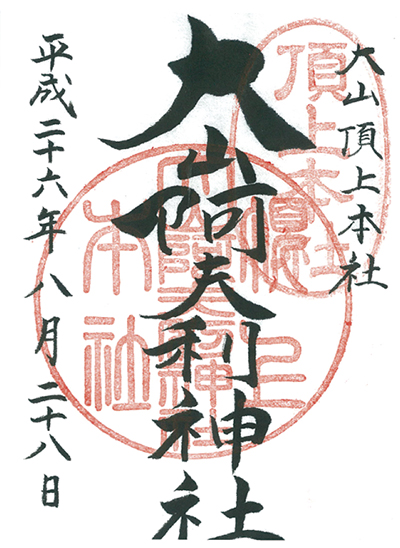 大山頂上本社
大山阿夫利神社
平成二十六年八月二十八日
頂上本社